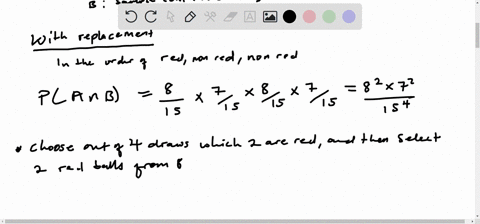 B : Sample
With replacement
In the order of red, non red, non red
P(A∩B) = 8/15 × 7/15 × 8/15 × 7/15 = 8² × 7² / 15⁴
• Choose out of 4 draws which 2 are red, and then select
2 red balls from 8